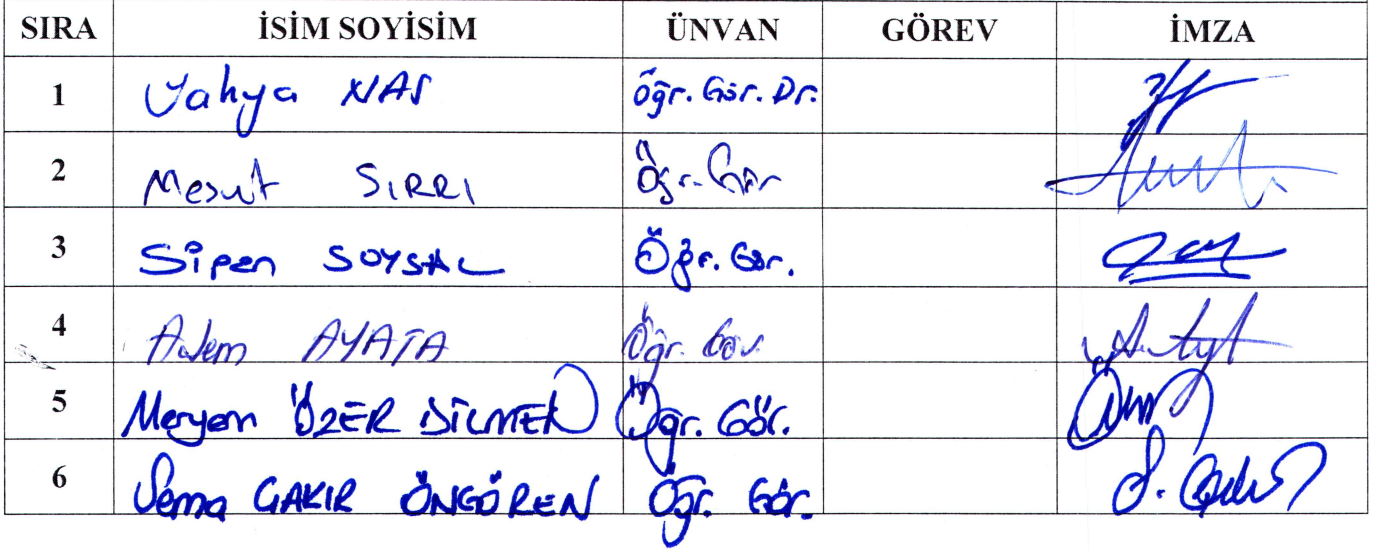 SIRA İSİM SOYİSİM ÜNVAN GÖREV İMZA
1 Yahya NAS Öğr. Gör. Dr.
2 Mesut SIRRI Öğr. Gör
3 Sipan SOYSAL Öğr. Gör.
4 Adem AYATA Öğr. Gör.
5 Meryem ÖZER DİLMEN Öğr. Gör.
6 Sema ÇAKIR ÖNGÖREN Öğr. Gör.